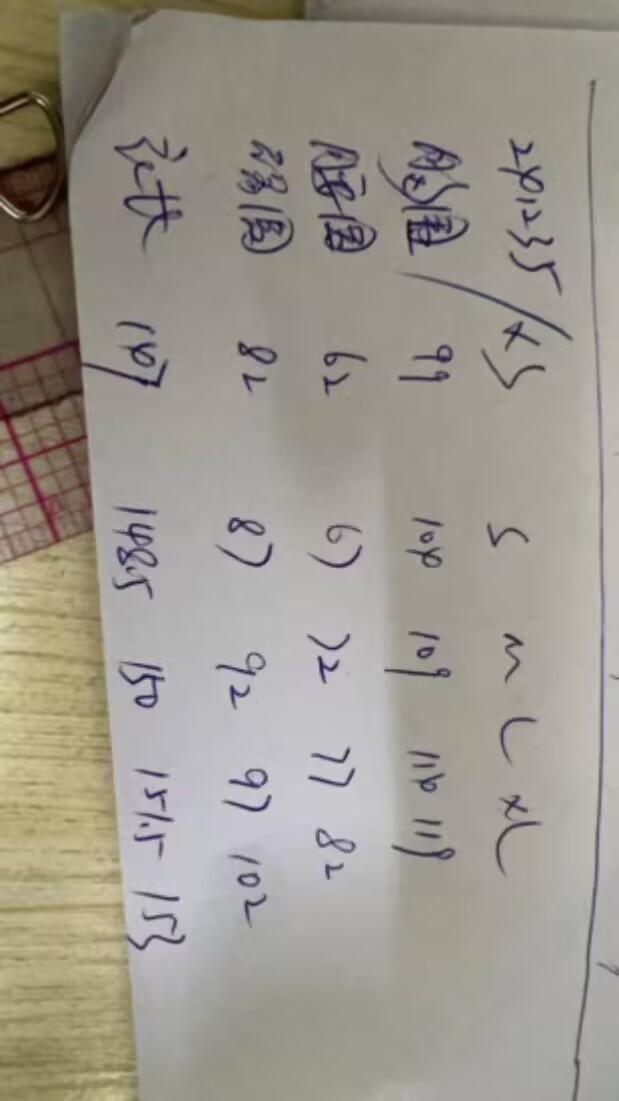 241235/XS S M L XL
胸围 99 104 109 114 119
腰围 62 67 72 77 82
臀围 82 87 92 97 102
衣长 147 148.5 150 151.5 153